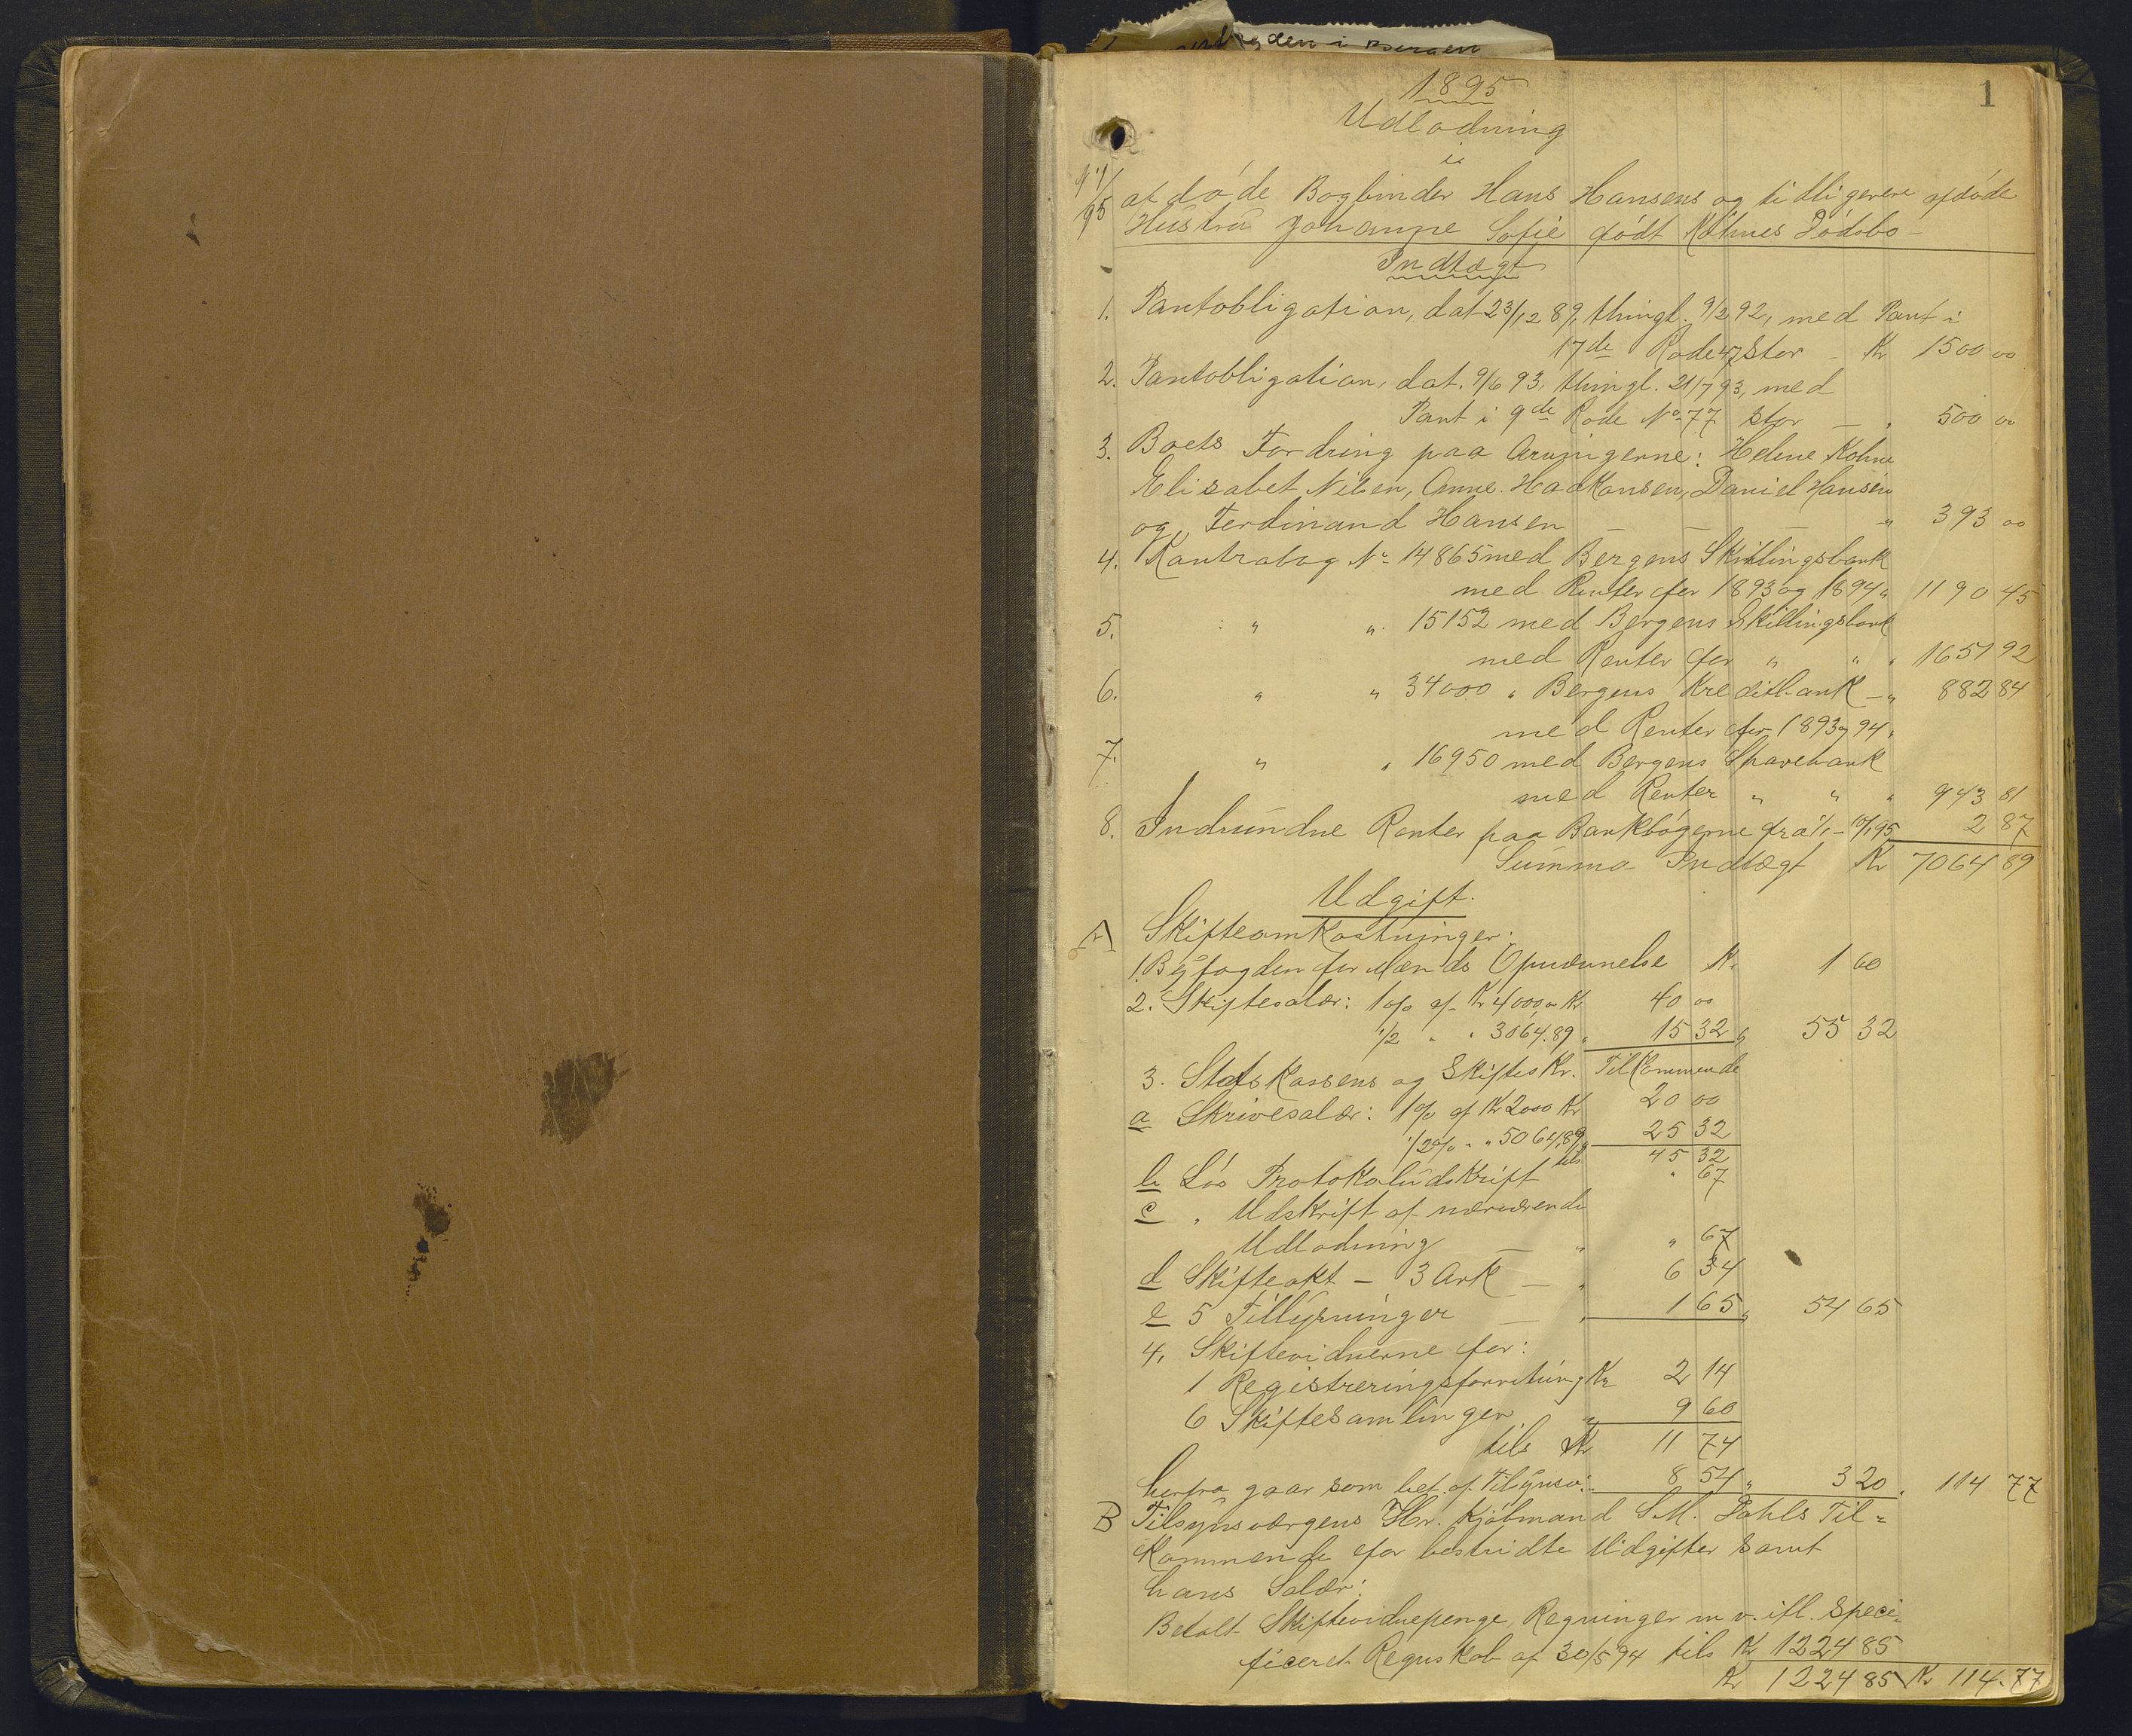 den i Bergen
1
1895
Udlodning
i
11/1 95 afdøde Bogbinder Hans Hansens og tidligere afdøde
Hustru Johanne Sofie født Køhnes Dødsbo
Indtægt
1. Pantobligation, dat. 23/12 89, thingl. 9/2 92, med Pant i
17de Rode 47 stor - Kr 1500 00
2. Pantobligation, dat. 9/6 93, thingl. 21/7 93, med
Pant i 9de Rode No 77 stor - " 500 00
3. Boets Fordring paa Arvingerne: Helene Køhne
Elisabet Nilsen, Anne Haakonsen, Daniel Hansen
og Ferdinand Hansen - - - " 393 00
4. Kontrabog No 14865 med Bergens Skillingsbank
med Renter for 1893 og 1894 " 1190 45
5. " " 15152 med Bergens Skillingsbank
med Renter for " " " 1651 92
6. " " 34000 " Bergens Kreditbank - " 882 84
med Renter for 1893 og 94.
7. " " 16950 med Bergens Sparebank
med Renter " " " 943 81
8. Indvundne Renter paa Bankbøgerne fra 1/1 - 10/1 95 2 87
Summa Indtægt Kr 7064 89
Udgift.
A Skifteomkostninger:
1. Byfogden for Mænds Opnævnelse Kr 1 60
2. Skiftesalær: 1 o/o af Kr 4000,00 Kr 40 00
1/2 " " 3064.89 " 15 32 " 55 32
3. Statskassens og Skifteskr. Tilkommende
a Skrivesalær: 1 o/o af Kr 2000 Kr 20 00
1/2 o/o " " 5064,89 " 25 32
tils 45 32
b Løs Protokoludskrift " 67
c " Udskrift af nærværende
Udlodning - " " 67
d Skifteakt - 3 Ark - " 6 34
e 5 Tillysninger - " 1 65 " 54 65
4. Skiftevidnerne for:
1 Registreringsforretning Kr 2 14
6 Skiftesamlinger " 9 60
tils Kr 11 74
herfra gaar som bet. af Tilsynsv. 8 54 " 3 20 " 114. 77
B Tilsynsværgens Hr. Kjøbmand S.M. Dahls Til=
kommende for bestridte Udgifter samt
hans Salær:
Betalt Skiftevidnepenge, Regninger m. v. ifl. speci=
ficeret Regnskab af 30/5 94 tils Kr 1224 85
Kr 1224 85 Kr 114.77